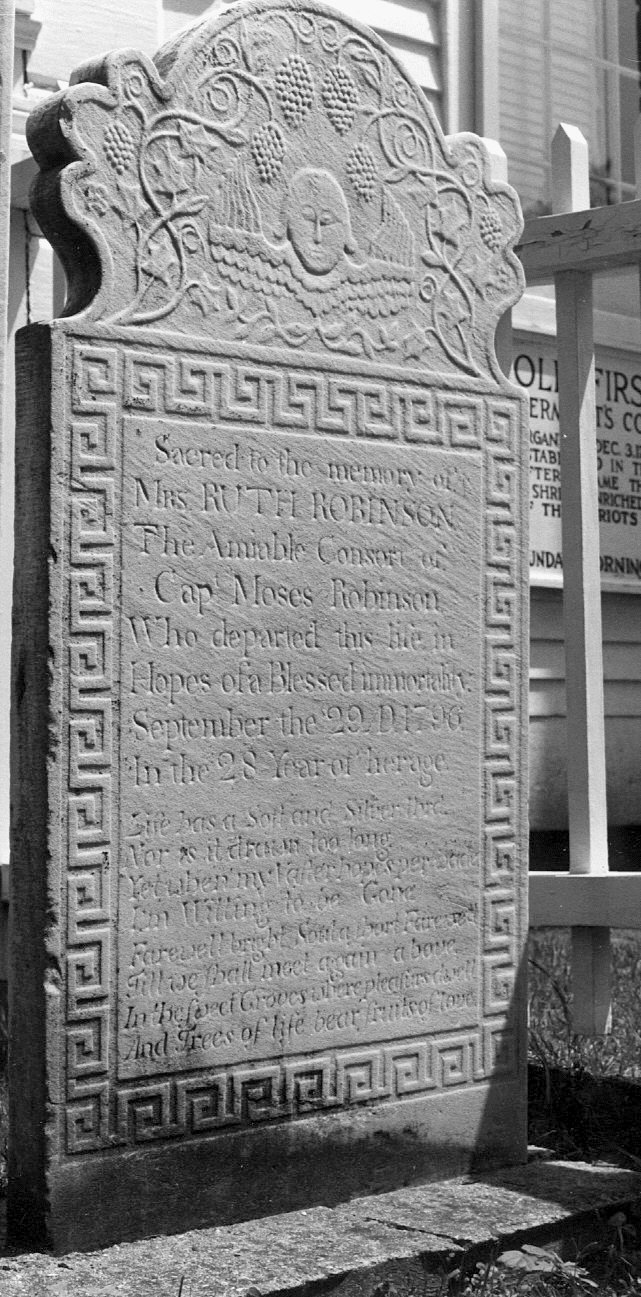 Sacred to the memory of
Mrs. RUTH ROBINSON
The Amiable Consort of
Capt Moses Robinson
Who departed this life in
Hopes of a Blessed immortality.
September the 29. D 1796.
In the 28 Year of her age.
Life has a Soft and Silver thrd.
Nor is it drawn too long.
Yet when my Vaster hopes
I'm Willing to be Gone
Farewell bright Soul a short Farewell
Till we shall meet again above
In the sweet Groves where pleasurs dwell
And Trees of life bear fruits of love
OLD FIRST
DEC. 3.
IN T
AME TH
SHRI ENRICHED
RIOTS